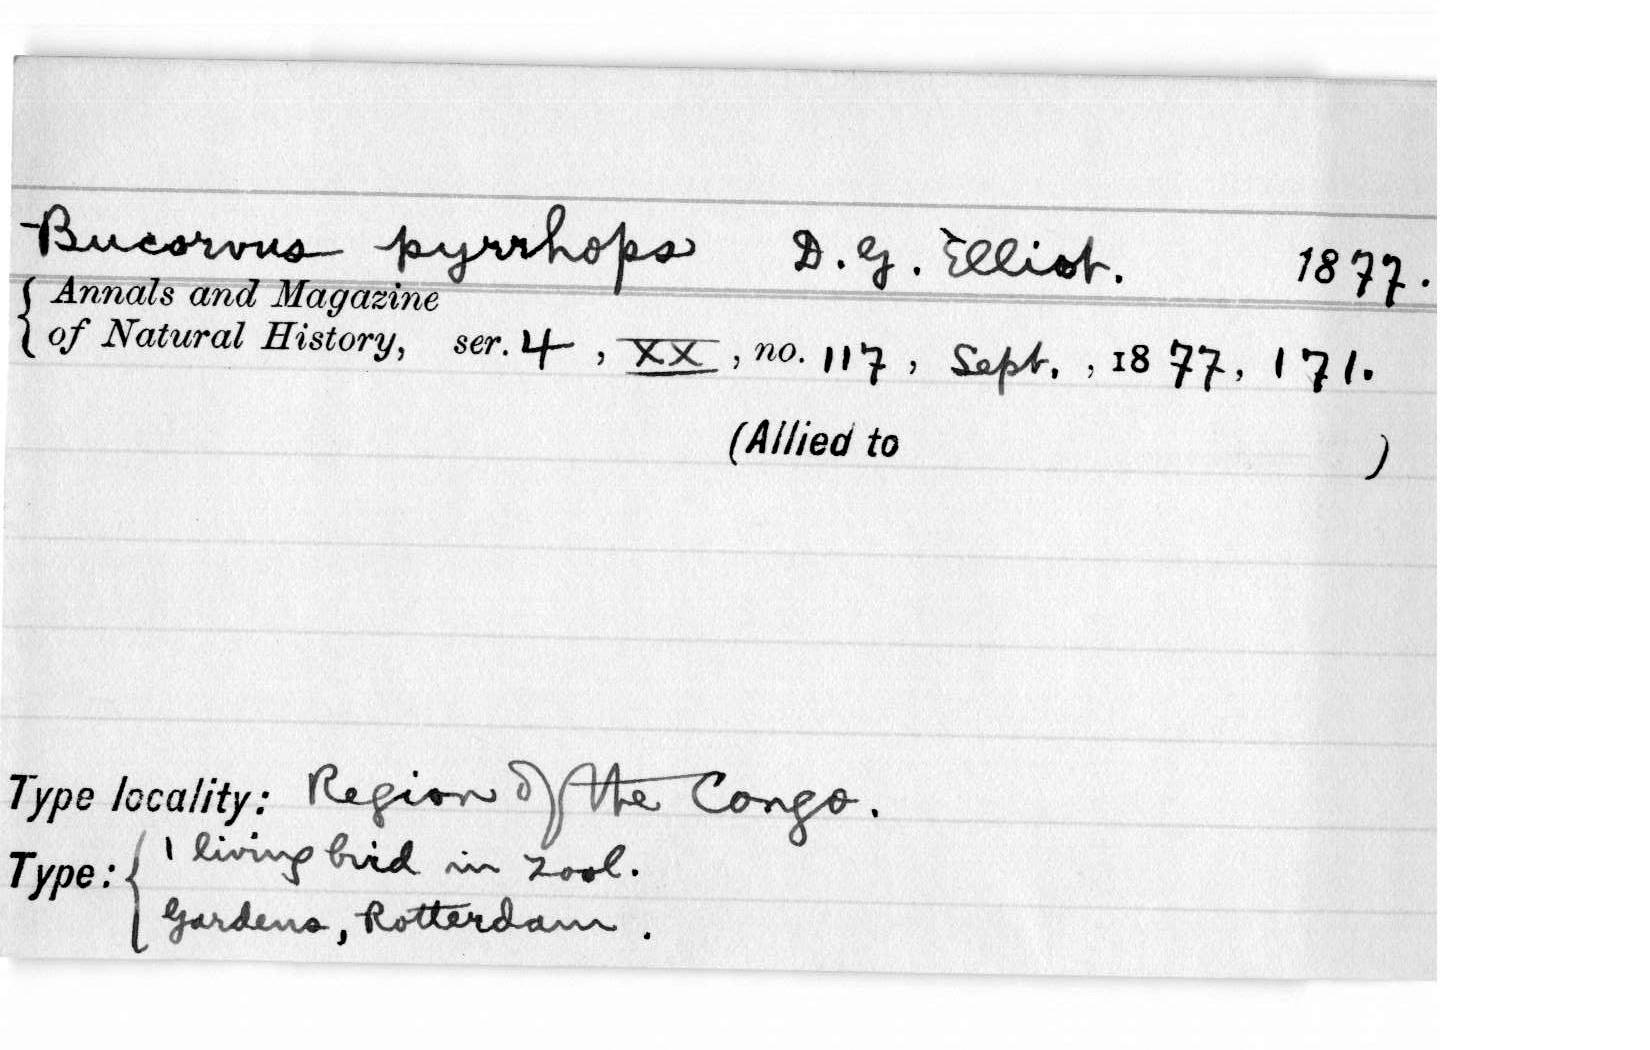 Bucorvus pyrrhops D. G. Elliot. 1877.
{ Annals and Magazine
of Natural History, ser. 4, XX, no. 117, Sept., 1877, 171.
(Allied to )
Type locality: Region of the Congo.
Type: { 1 living bird in Zool.
Gardens, Rotterdam.